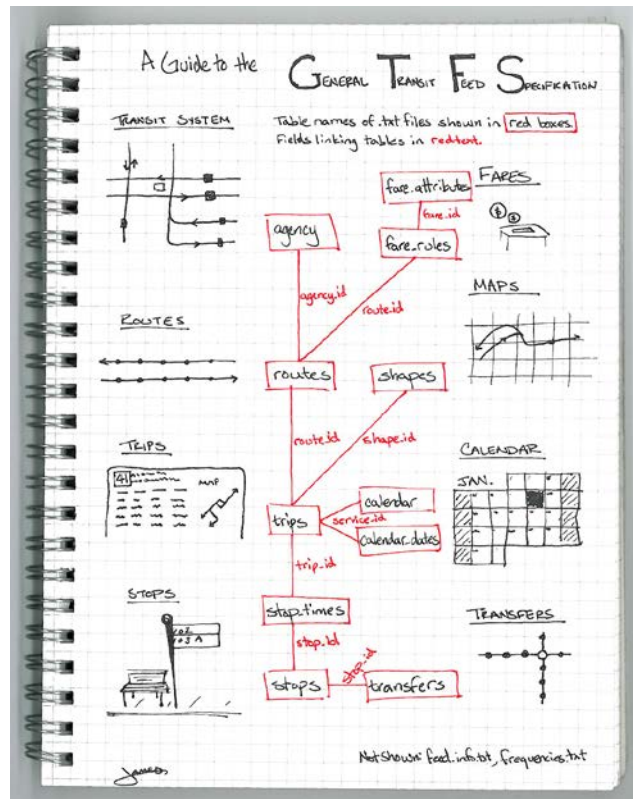 A Guide to the GENERAL TRANSIT FEED SPECIFICATION
TRANSIT SYSTEM
Table names of .txt files shown in red boxes.
Fields linking tables in red text.
fare_attributes
FARES
fare_id
$ $
agency
fare_rules
agency_id
route_id
MAPS
ROUTES
routes
shapes
route_id
shape_id
TRIPS
CALENDAR
41
MAP
JAN.
calendar
trips
service_id
calendar_dates
trip_id
STOPS
stop_times
TRANSFERS
102
103A
stop_id
stop_id
stops
transfers
Not shown: feed_info.txt, frequencies.txt
James